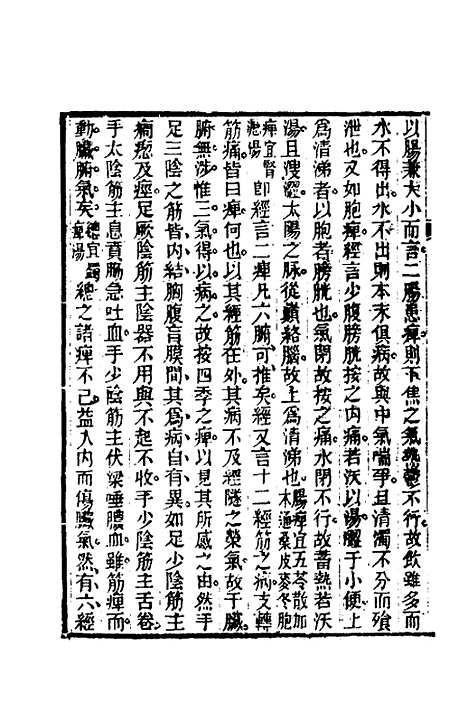 以腸兼大小而言二腸患痺則下焦之氣鬱不行故飲雖多而
水不得出水不出則本末俱病故與中氣喘爭且清濁不分而飱
泄也又如胞痺經言少腹膀胱按之內痛若沃以湯澀于小便上
爲清涕者以胞者膀胱也氣閉故按之痛水閉不行故蓄熱若沃
湯且溲澀太陽之脉從巔絡腦故上爲清涕也腸痺宜五苓散加木通桑皮麥冬胞
痺宜腎瀝湯卽經言二痺凡六腑可推矣經又言十二經筋之病支轉
筋痛皆曰痺何也以其經筋在外其病不及經隧之榮氣故于臟
腑無涉惟三氣得以病之故按四季之痺以見其所感之由然手
足三陰之筋皆內結胸腹肓膜間其爲病自有異如足少陰筋主
癇瘛及痙足厥陰筋主陰器不用與不起不收手少陰筋主舌卷
手太陰筋主息賁脇急吐血手少陰筋主伏梁唾膿血雖筋痺而
動臟腑氣矣總宜蠲痺湯總之諸痺不已益入內而傷臟氣然有六經